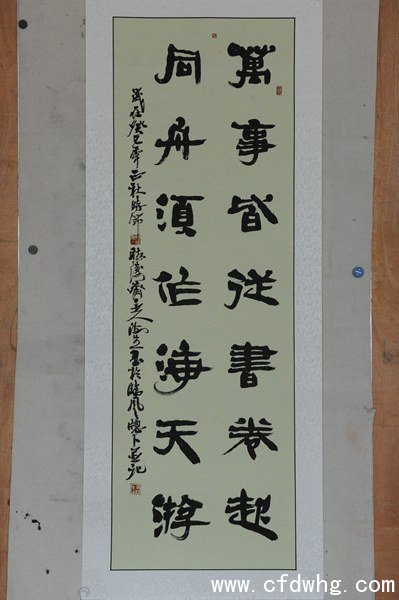 萬事皆從書卷起
同舟須作海天游
歲在癸巳年正秋時節
www.cfdwhg.com